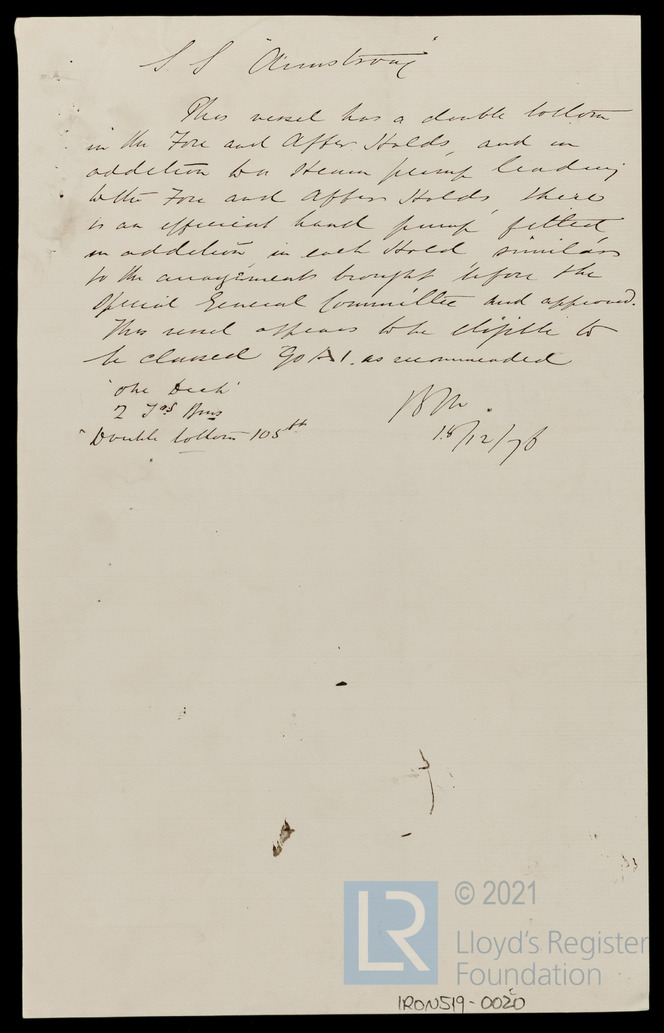 S S "Armstrong"
This vessel has a double bottom
in the Fore and After Holds, and in
addition to a steam pump leading
to the Fore and After Holds, there
is an efficient hand pump fitted
in addition, in each Hold similar
to the arrangements brought before the
Special General Committee and approved.
This vessel appears to be eligible to
be classed 90 A 1. as recommended
'One Deck'
2 Trs Bms
"Double bottom 105
18/12/76
LR
© 2021
Lloyd's Register
Foundation
IRON519-0020